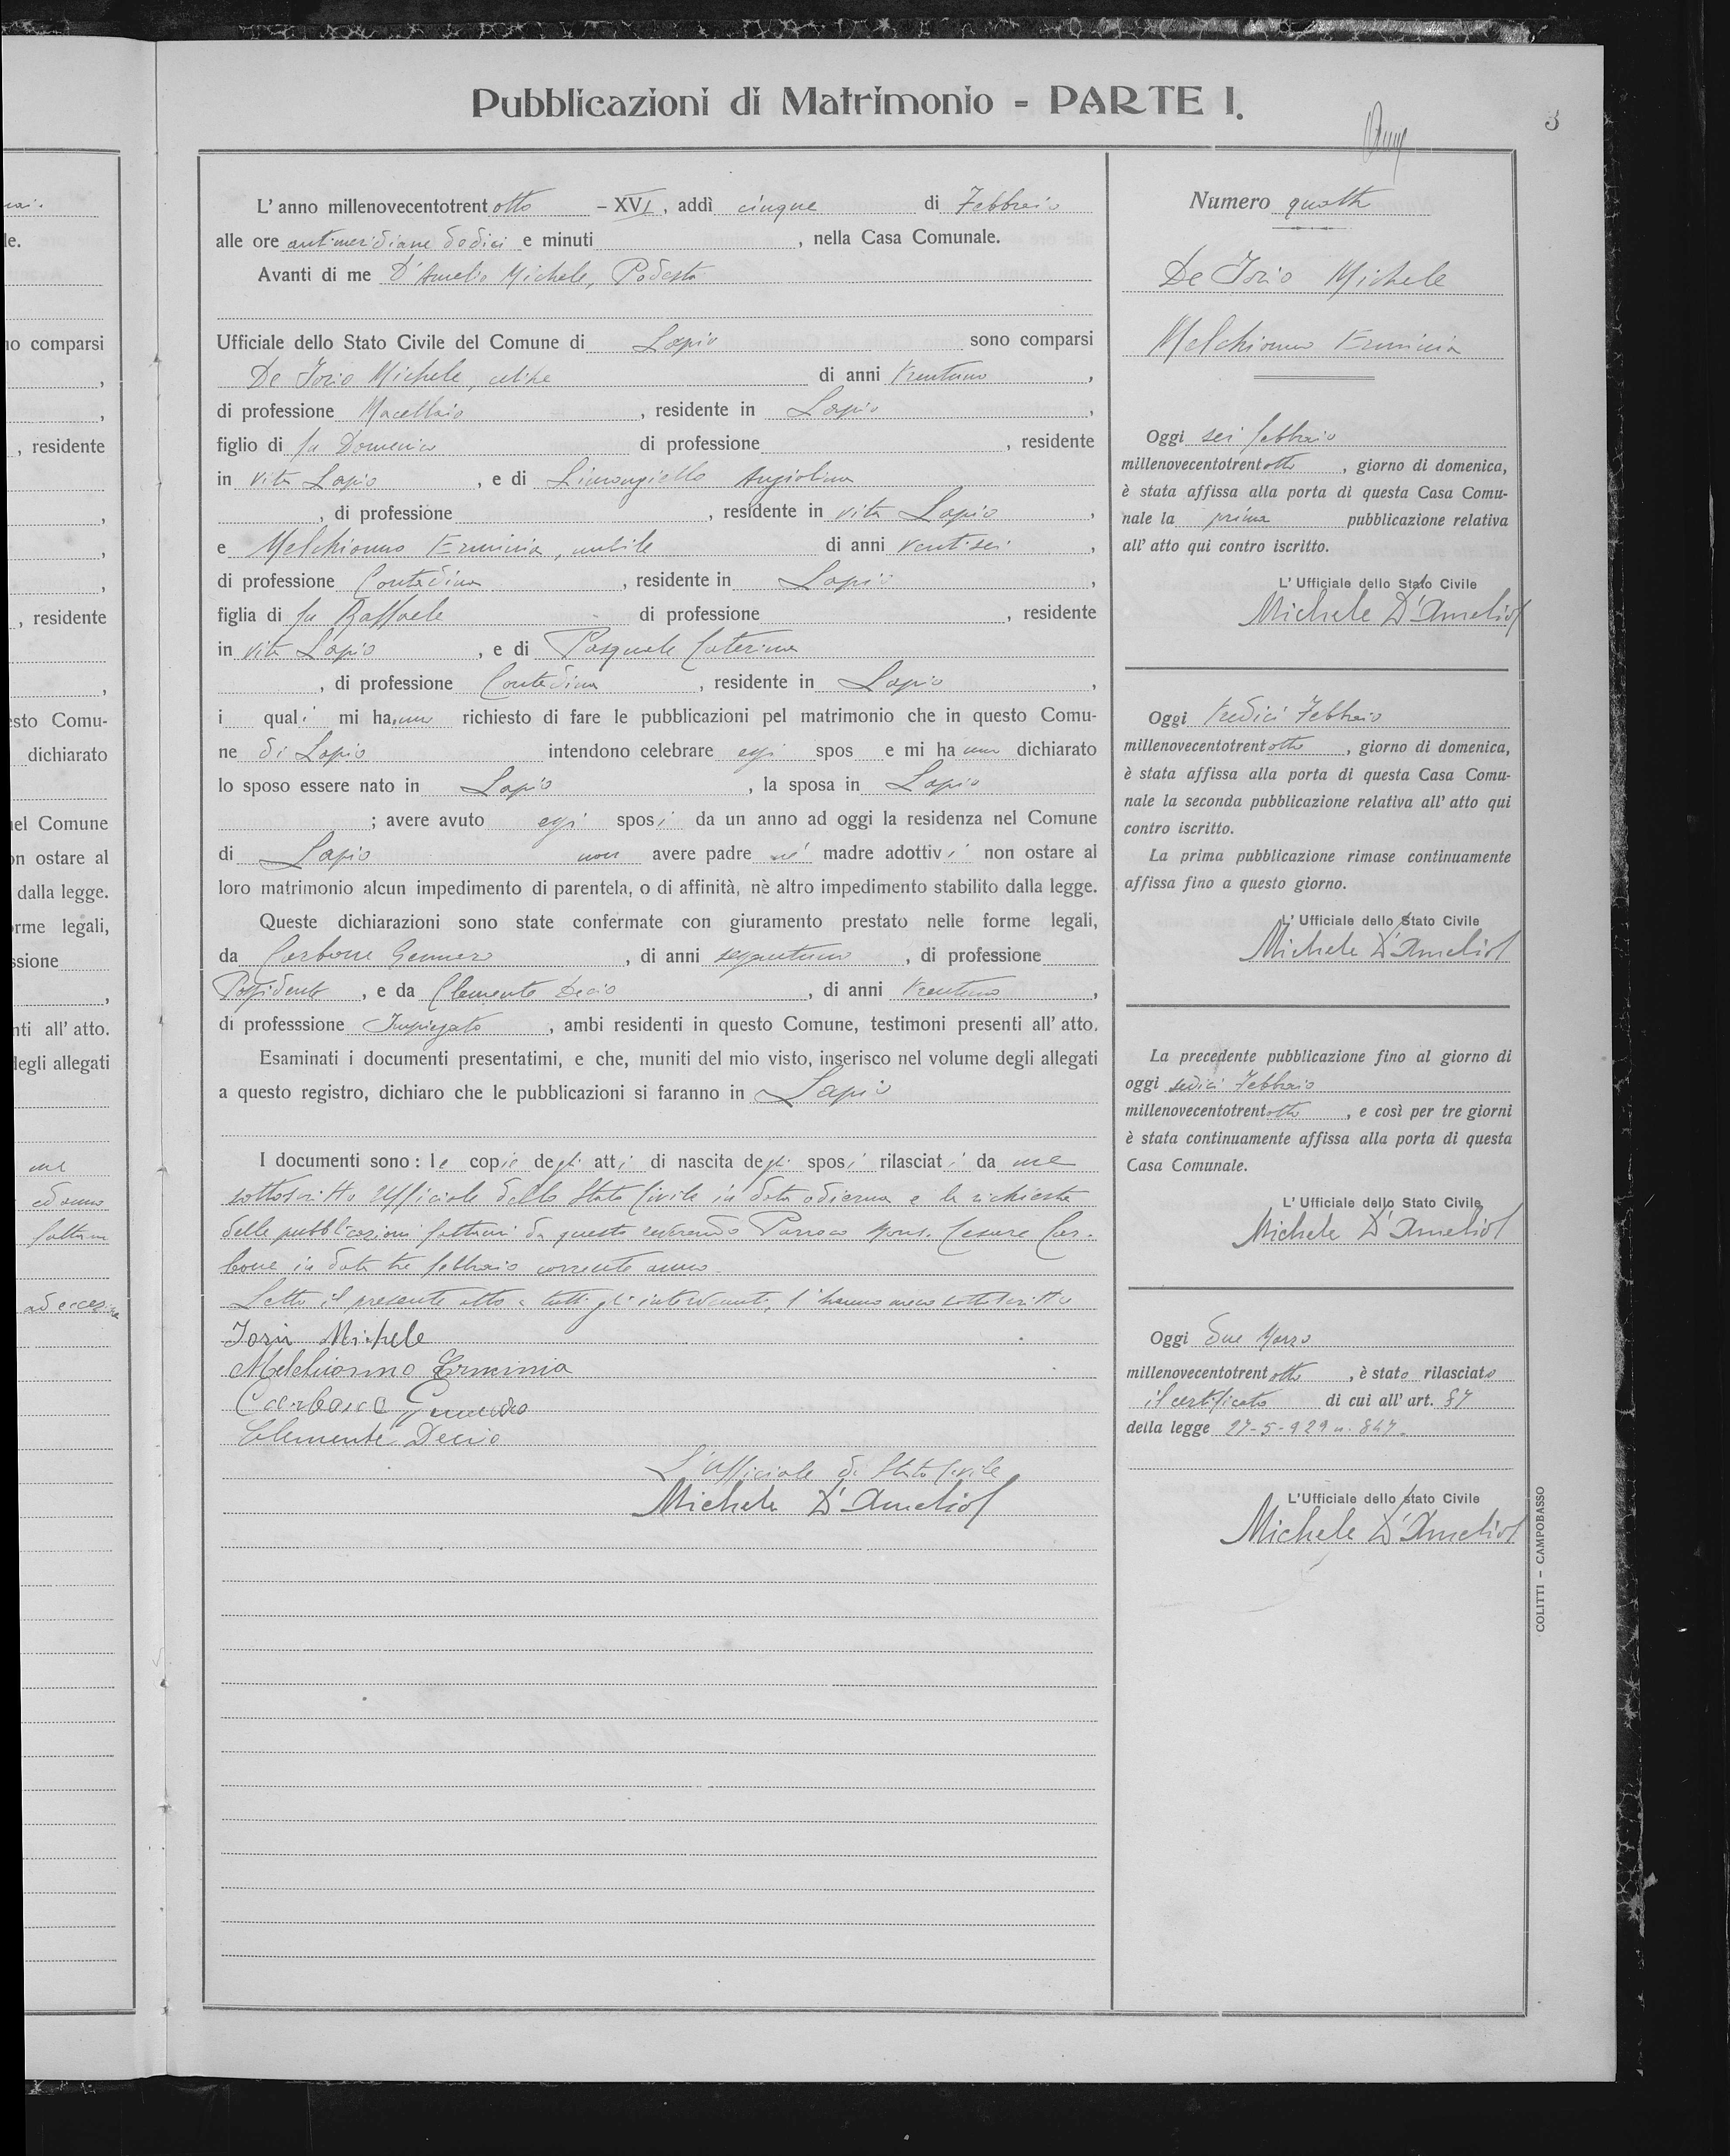 Pubblicazioni di Matrimonio - PARTE I.
3
L' anno millenovecentotrent otto - XVI, addì cinque di Febbraio
alle ore antimeridiane dodici e minuti , nella Casa Comunale.
Avanti di me D'Amelio Michele, Podestà
Ufficiale dello Stato Civile del Comune di Lapio sono comparsi
De Iorio Michele, celibe di anni trentuno ,
di professione Macellaio , residente in Lapio ,
figlio di fu Domenico di professione , residente
in vita Lapio , e di Limongiello Angiolina
, di professione , residente in vita Lapio ,
e Melchionno Erminia, nubile di anni ventisei ,
di professione Contadina , residente in Lapio ,
figlia di fu Raffaele di professione , residente
in vita Lapio , e di Pasquale Caterina
, di professione Contadina , residente in Lapio ,
i quali mi hanno richiesto di fare le pubblicazioni pel matrimonio che in questo Comu-
ne di Lapio intendono celebrare essi spos e mi ha nno dichiarato
lo sposo essere nato in Lapio , la sposa in Lapio
; avere avuto essi sposi da un anno ad oggi la residenza nel Comune
di Lapio non avere padre nè madre adottivi non ostare al
loro matrimonio alcun impedimento di parentela, o di affinità, nè altro impedimento stabilito dalla legge.
Queste dichiarazioni sono state confermate con giuramento prestato nelle forme legali,
da Carbone Gennaro , di anni sessantuno , di professione
Possidente , e da Clemente Decio , di anni trentuno ,
di professsione Impiegato , ambi residenti in questo Comune, testimoni presenti all' atto.
Esaminati i documenti presentatimi, e che, muniti del mio visto, inserisco nel volume degli allegati
a questo registro, dichiaro che le pubblicazioni si faranno in Lapio
I documenti sono: le copie degli atti di nascita degli sposi rilasciati da me
sottoscritto Ufficiale dello Stato Civile in data odierna e la richiesta
delle pubblicazioni fattami da questo reverendo Parroco Mons. Cesare Car-
bone in data tre febbraio corrente anno.
Letto il presente atto a tutti gli intervenuti, l'hanno meco sottoscritto
Iorio Michele
Melchionno Erminia
Carbone Gennaro
Clemente Decio
L'Ufficiale di Stato Civile
Michele D'Amelio
Numero quattro
De Iorio Michele
Melchionno Erminia
Oggi sei febbraio
millenovecentotrentotto , giorno di domenica,
è stata affissa alla porta di questa Casa Comu-
nale la prima pubblicazione relativa
all' atto qui contro iscritto.
L' Ufficiale dello Stato Civile
Michele D'Amelio
Oggi tredici Febbraio
millenovecentotrentotto , giorno di domenica,
è stata affissa alla porta di questa Casa Comu-
nale la seconda pubblicazione relativa all' atto qui
contro iscritto.
La prima pubblicazione rimase continuamente
affissa fino a questo giorno.
L' Ufficiale dello Stato Civile
Michele D'Amelio
La precedente pubblicazione fino al giorno di
oggi sedici Febbraio
millenovecentotrentotto , e così per tre giorni
è stata continuamente affissa alla porta di questa
Casa Comunale.
L' Ufficiale dello Stato Civile
Michele D'Amelio
Oggi due Marzo
millenovecentotrent otto , è stato rilasciato
il certificato di cui all' art. 87
della legge 27-5-929 n. 847.
L'Ufficiale dello stato Civile
Michele D'Amelio
COLITTI - CAMPOBASSO
le.
no comparsi
, residente
, residente
esto Comu-
dichiarato
nel Comune
on ostare al
dalla legge.
rme legali,
ssione
nti all' atto.
degli allegati
me